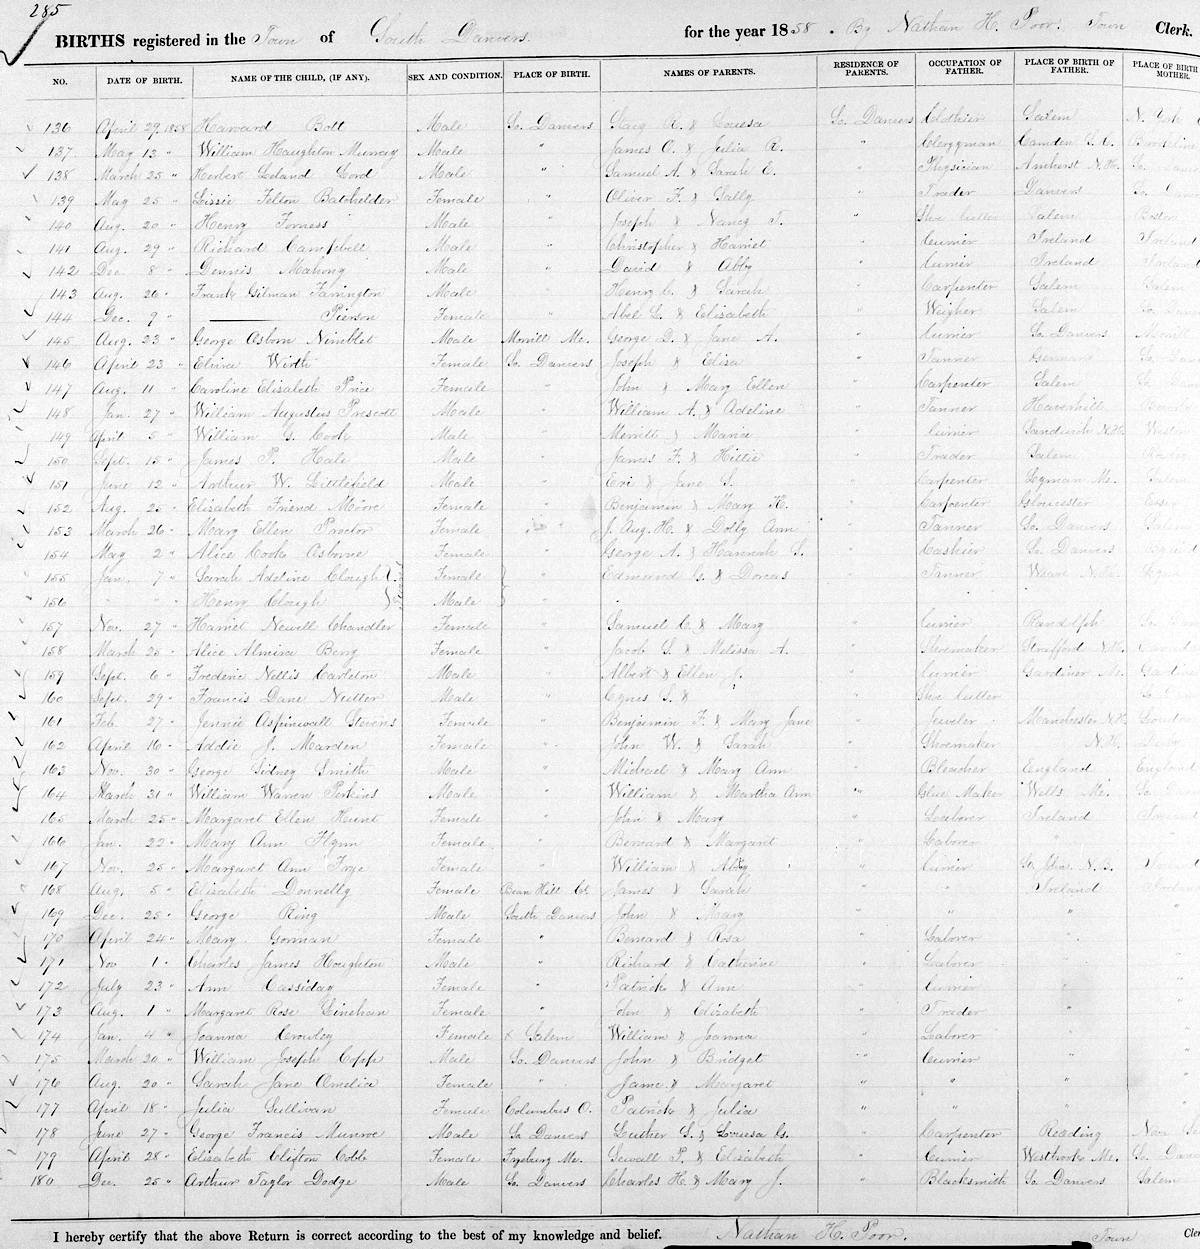 285
BIRTHS registered in the Town of South Danvers. for the year 1858. By Nathan H. Poor. Town Clerk.
NO. DATE OF BIRTH. NAME OF THE CHILD, (IF ANY). SEX AND CONDITION. PLACE OF BIRTH. NAMES OF PARENTS. RESIDENCE OF PARENTS. OCCUPATION OF FATHER. PLACE OF BIRTH OF FATHER. PLACE OF BIRTH MOTHER.
136 April 29 1858 Harvard Bott Male So. Danvers & Louesa So. Danvers Clothier Salem N. York
137 May 13 " William Haughton Murray Male " James O. & Julia R. " Clergyman Camden S. C.
138 March 25 " Herbert Leland Lord Male " Samuel A. & Sarah E. " Physician Amherst N.H.
139 May 25 " Lissie Felton Batchelder Female " Oliver F. & Sally " Trader Danvers So. Danvers
140 Aug. 20 " Henry Forness Male " Joseph & Nancy T. " Shoe Cutter Salem Boston
141 Aug. 29 " Richard Campbell Male " Christopher & Harriet " Currier Ireland Ireland
142 Dec. 8 " Dennis Mahony Male " David & Abby " Currier Ireland Ireland
143 Aug. 26 " Frank Gilman Farrington Male " Henry C. & Sarah " Carpenter Salem Salem
144 Dec. 9 " Pierson Female " Abel L. & Elisabeth " Weigher Salem So. Danvers
145 Aug. 23 " George Osborn Nimblet Male Morrill Me. George D. & Jane A. " Currier So. Danvers Morrill
146 April 23 " Elvira Wirth Female So. Danvers Joseph & Elisa " Tanner Germany So. Danvers
147 Aug. 11 " Caroline Elisabeth Price Female " John & Mary Ellen " Carpenter Salem
148 Jan. 27 " William Augustus Prescott Male " William A. & Adeline " Tanner Haverhill
149 April 5 " William G. Cook Male " Merritt & Maria " Currier Sandwich N.H.
150 Sept. 15 " James P. Hale Male " James F. & Hittie " Trader Salem
151 June 12 " Arthur W. Littlefield Male " & Jane S. " Carpenter Lyman Me. Salem
152 Aug. 25 " Elisabeth Friend Moore Female " Benjamin & Mary H. " Carpenter Gloucester Essex
153 March 26 " Mary Ellen Proctor Female " J. Aug. H. & Dolly Ann " Tanner So. Danvers
154 May 2 " Alice Cook Osborne Female " George A. & Hannah S. " Cashier So. Danvers
155 Jan. 7 " Sarah Adeline Clough Female " Edmund G. & Dorcas " Tanner Weare N.H.
156 " " " Henry Clough Male "
157 Nov. 27 " Harriet Newell Chandler Female " Samuel C. & Mary " Currier Randolph
158 March 25 " Alice Almira Berry Female " Jacob S. & Melissa A. " Shoemaker Strafford N.H.
159 Sept. 6 " Frederic Nellis Carleton Male " Albert & Ellen J. " Currier Gardiner Me.
160 Sept. 29 " Francis Dane Nutter Male " Cyrus S. & " Shoe Cutter
161 Feb. 27 " Jennie Aspinwall Stevens Female " Benjamin F. & Mary Jane " Jeweler Manchester N.H.
162 April 16 " Addie J. Marden Female " John W. & Sarah " Shoemaker N.H.
163 Nov. 30 " George Sidney Smith Male " Michael & Mary Ann " Bleacher England England
164 March 31 " William Warren Perkins Male " William & Martha Ann " Glue Maker Wells Me. So. Danvers
165 March 25 " Margaret Ellen Hunt Female " John & Mary " Laborer Ireland Ireland
166 Jan. 22 " Mary Ann Flynn Female " Bernard & Margaret " Laborer "
167 Nov. 25 " Margaret Ann Frye Female " William & Abby " Currier St. John N.B.
168 Aug. 5 " Elisabeth Donnelly Female Bean Hill Ct. James & Sarah " " Ireland Ireland
169 Dec. 25 " George Ring Male South Danvers John & Mary " " " "
170 April 24 " Mary Gorman Female " Bernard & Rosa " Laborer " "
171 Nov 1 " Charles James Houghton Male " Richard & Catherine " Laborer " "
172 July 23 " Ann Cassiday Female " Patrick & Ann " Currier " "
173 Aug. 1 " Margaret Rose Linehan Female " John & Elizabeth " Trader " "
174 Jan. 4 " Joanna Crowley Female x Salem William & Joanna " Laborer " "
175 March 20 " William Joseph Copp Male So. Danvers John & Bridget " Currier " "
176 Aug. 20 " Sarah Jane Amelia Female " Jame & Margaret " " " "
177 April 18 " Julia Sullivan Female Columbus O. Patrick & Julia " " " "
178 June 27 " George Francis Munroe Male So. Danvers Luther S. & Louesa G. " Carpenter Reading
179 April 28 " Elisabeth Clifton Cobb Female Fryeburg Me. Sewall P. & Elisabeth " Currier Westbrook Me. So. Danvers
180 Dec. 25 " Arthur Taylor Dodge Male So. Danvers Charles H. & Mary J. " Blacksmith So. Danvers Salem
I hereby certify that the above Return is correct according to the best of my knowledge and belief. Nathan H. Poor. Town